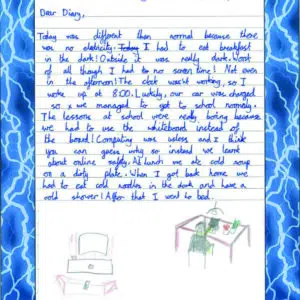 Dear Diary,
Today was different than normal because there
was no eletricity. Today I had to eat breakfast
in the dark! Outside it was really dark. Worst
of all though I had to no screen time! Not even
in the afternoon! The clock wasn't working, so I
woke up at 8:00. Luckily, our car was charged
so we managed to get to school normely.
The lessons at school were really boring because
we had to use the whiteboard instead of
the board! Computing was useless and I think
you can guess why so instead we learnt
about online safety. At lunch we ate cold soup
on a dirty plate. When I got back home we
had to eat cold noodles in the dark and have a
cold shower! After that I went to bed.